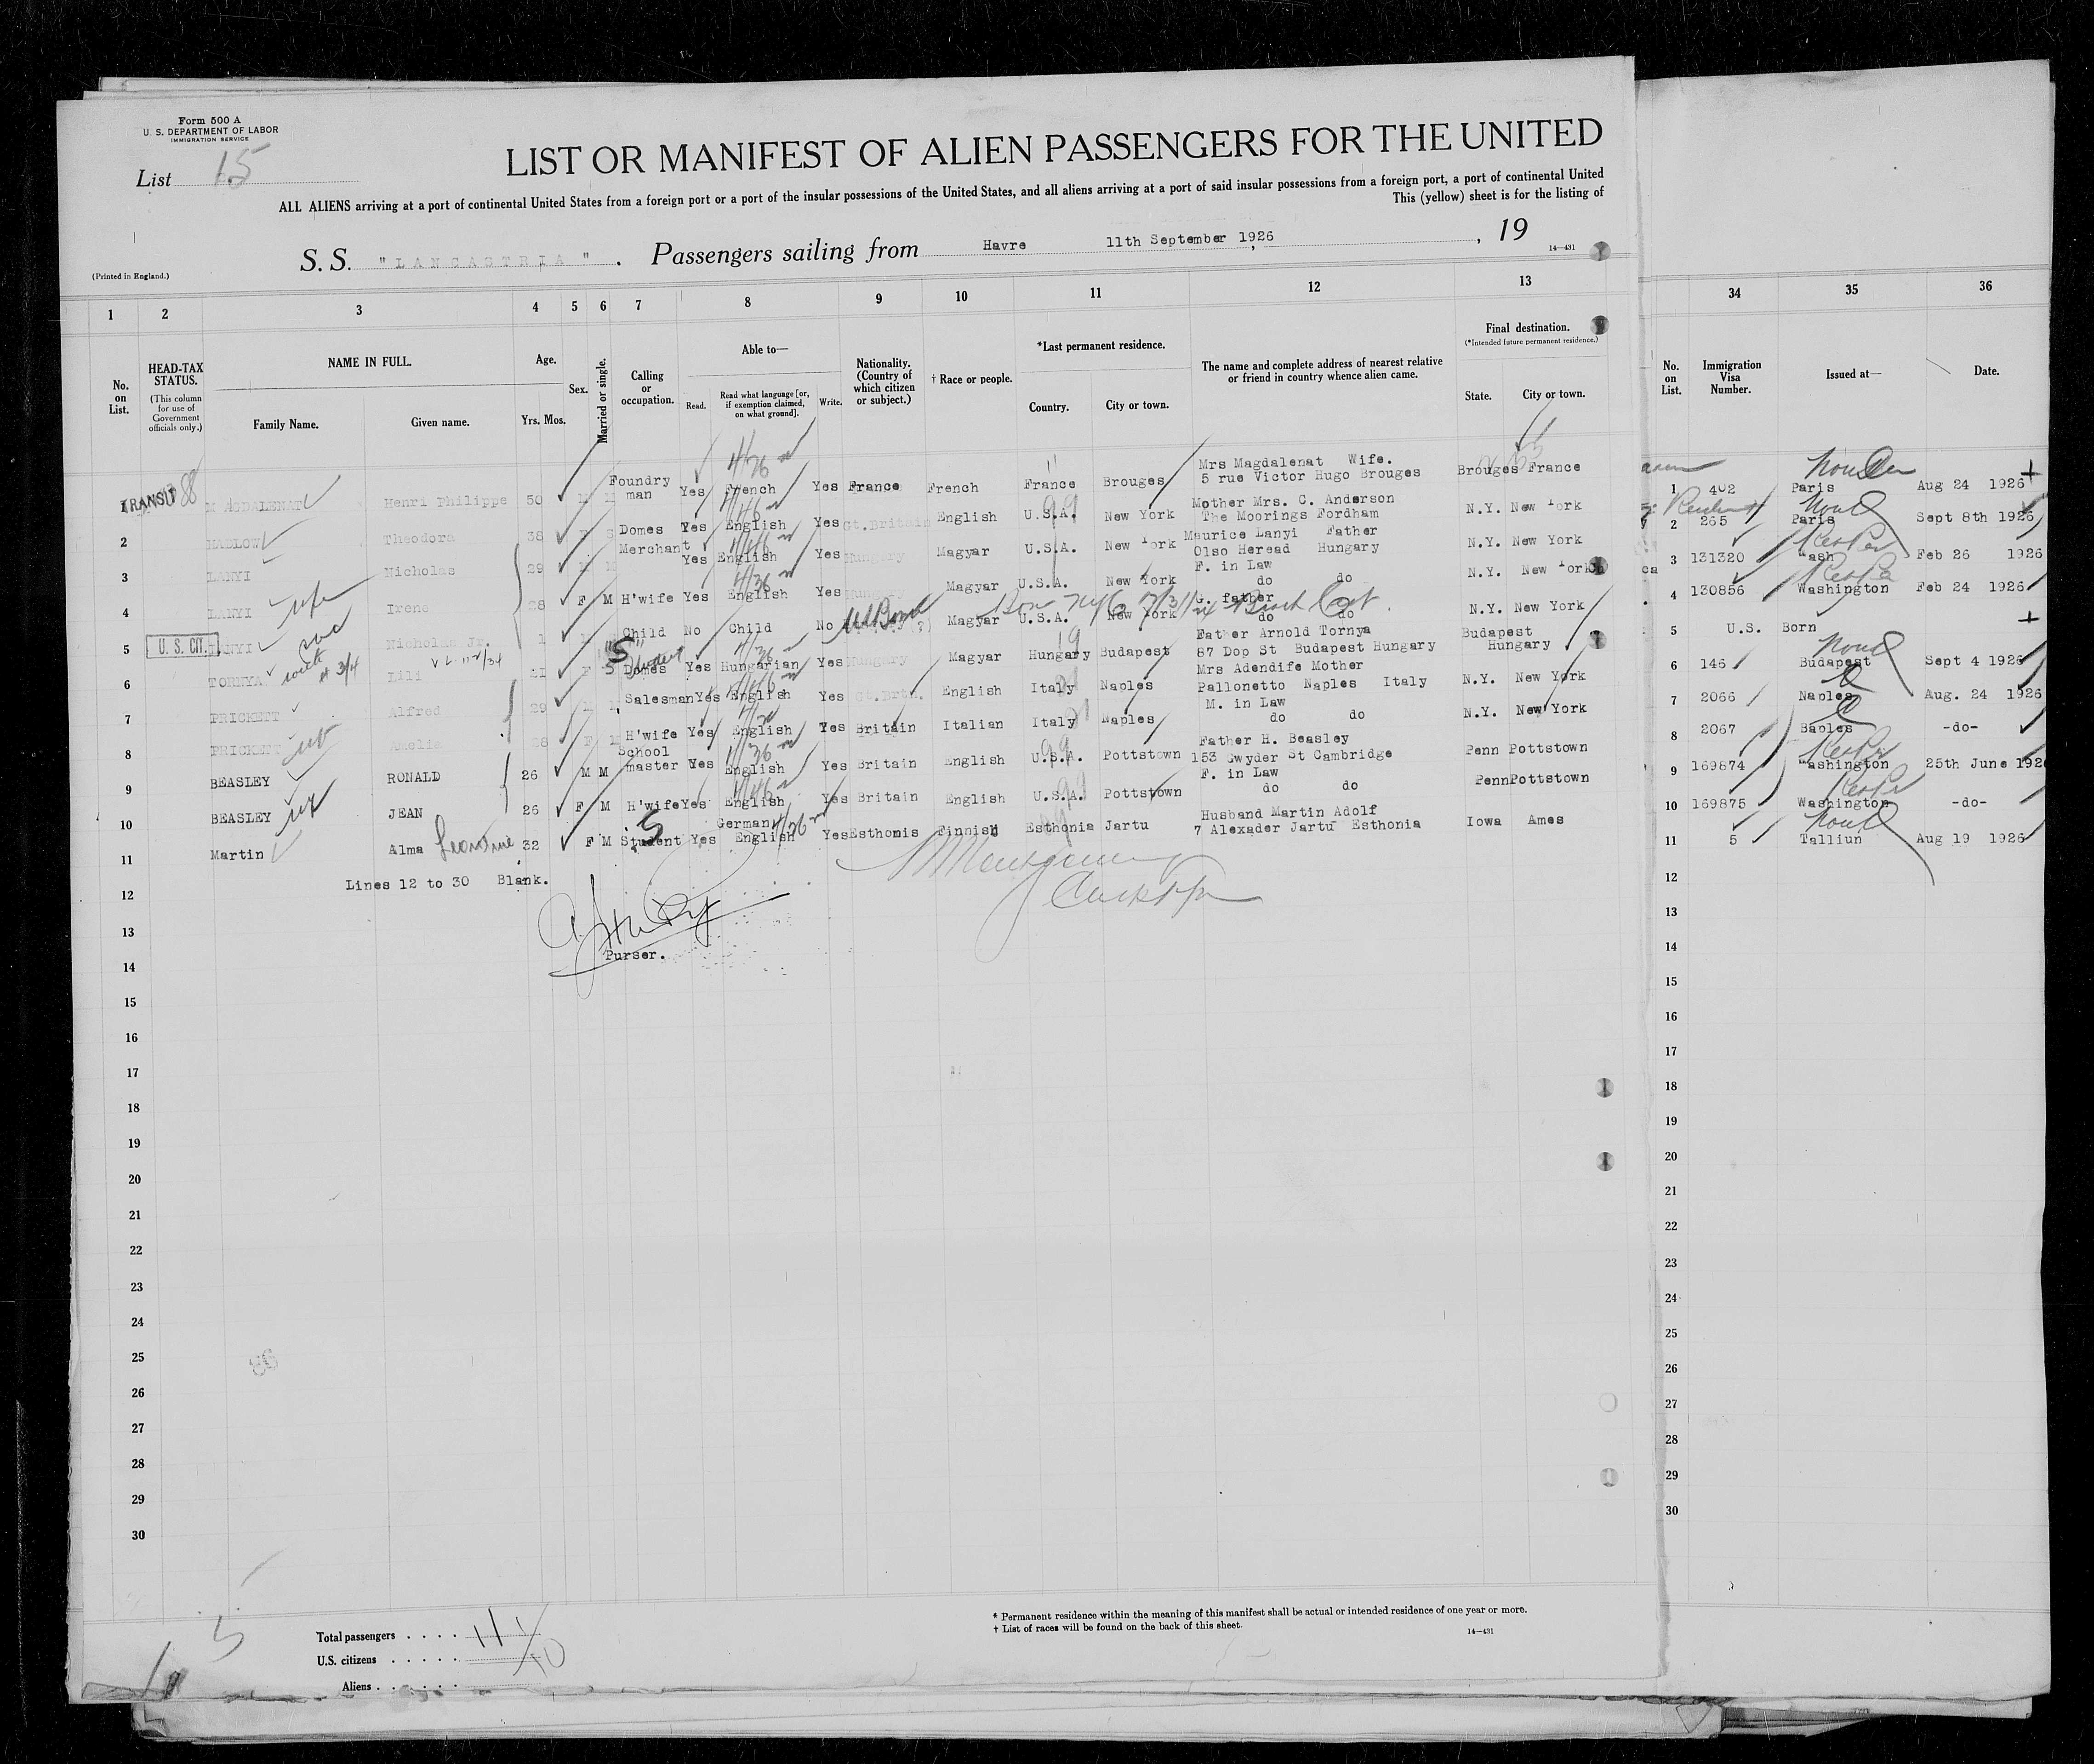 Form 500 A
U. S. DEPARTMENT OF LABOR
IMMIGRATION SERVICE
List 15
LIST OR MANIFEST OF ALIEN PASSENGERS FOR THE UNITED
ALL ALIENS arriving at a port of continental United States from a foreign port or a port of the insular possessions of the United States, and all aliens arriving at a port of said insular possessions from a foreign port, a port of continental United
This (yellow) sheet is for the listing of
S. S. "LANCASTRIA". Passengers sailing from Havre 11th September 1926, 19
14—431
(Printed in England.)
1 2 3 4 5 6 7 8 9 10 11 12 13 34 35 36
No. on List.
HEAD-TAX STATUS.
(This column for use of Government officials only.)
NAME IN FULL.
Family Name. Given name.
Age.
Yrs. Mos.
Sex.
Married or single.
Calling or occupation.
Able to—
Read. Read what language [or, if exemption claimed, on what ground]. Write.
Nationality. (Country of which citizen or subject.)
† Race or people.
*Last permanent residence.
Country. City or town.
The name and complete address of nearest relative or friend in country whence alien came.
Final destination.
(*Intended future permanent residence.)
State. City or town.
No. on List.
Immigration Visa Number.
Issued at—
Date.
1 TRANSIT MAGDALENAT Henri Philippe 50 M M Foundry man Yes French Yes France French France Brouges Mrs Magdalenat Wife. 5 rue Victor Hugo Brouges Brouges France 1 402 Paris Aug 24 1926
2 HADLOW Theodora 38 F S Domes Yes English Yes Gt.Britain English U.S.A. New York Mother Mrs. C. Anderson The Moorings Fordham N.Y. New York 2 265 Paris Sept 8th 1926
3 LANYI Nicholas 29 M M Merchant Yes English Yes Hungary Magyar U.S.A. New York Maurice Lanyi Father Olso Heread Hungary N.Y. New York 3 131320 Wash Feb 26 1926
4 LANYI Irene 28 F M H'wife Yes English Yes Hungary Magyar U.S.A. New York F. in Law do do N.Y. New York 4 130856 Washington Feb 24 1926
5 U. S. CIT. LANYI Nicholas Jr. 1 Child No Child No Magyar U.S.A. New York G. father do do N.Y. New York 5 U.S. Born
6 TORNYA Lili 21 F S Domes Yes Hungarian Yes Hungary Magyar Hungary Budapest Father Arnold Tornya 87 Dop St Budapest Hungary Budapest Hungary 6 146 Budapest Sept 4 1926
7 PRICKETT Alfred 29 M M Salesman Yes English Yes Gt.Brtn. English Italy Naples Mrs Adendife Mother Pallonetto Naples Italy N.Y. New York 7 2066 Naples Aug. 24 1926
8 PRICKETT Amelia 28 F M H'wife Yes English Yes Britain Italian Italy Naples M. in Law do do N.Y. New York 8 2067 Baples -do-
9 BEASLEY RONALD 26 M M School master Yes English Yes Britain English U.S.A. Pottstown Father H. Beasley 153 Gwyder St Cambridge Penn Pottstown 9 169874 Washington 25th June 192
10 BEASLEY JEAN 26 F M H'wife Yes English Yes Britain English U.S.A. Pottstown F. in Law do do Penn Pottstown 10 169875 Washington -do-
11 Martin Alma Leontine 32 F M Student Yes German English Yes Esthonis Finnish Esthonia Jartu Husband Martin Adolf 7 Alexader Jartu Esthonia Iowa Ames 11 5 Talliun Aug 19 1926
Lines 12 to 30 Blank.
Purser.
12 12
13 13
14 14
15 15
16 16
17 17
18 18
19 19
20 20
21 21
22 22
23 23
24 24
25 25
26 26
27 27
28 28
29 29
30 30
Total passengers . . . . 11
U.S. citizens . . . . . 1
Aliens . . . . . . 10
* Permanent residence within the meaning of this manifest shall be actual or intended residence of one year or more.
† List of races will be found on the back of this sheet.
14—431